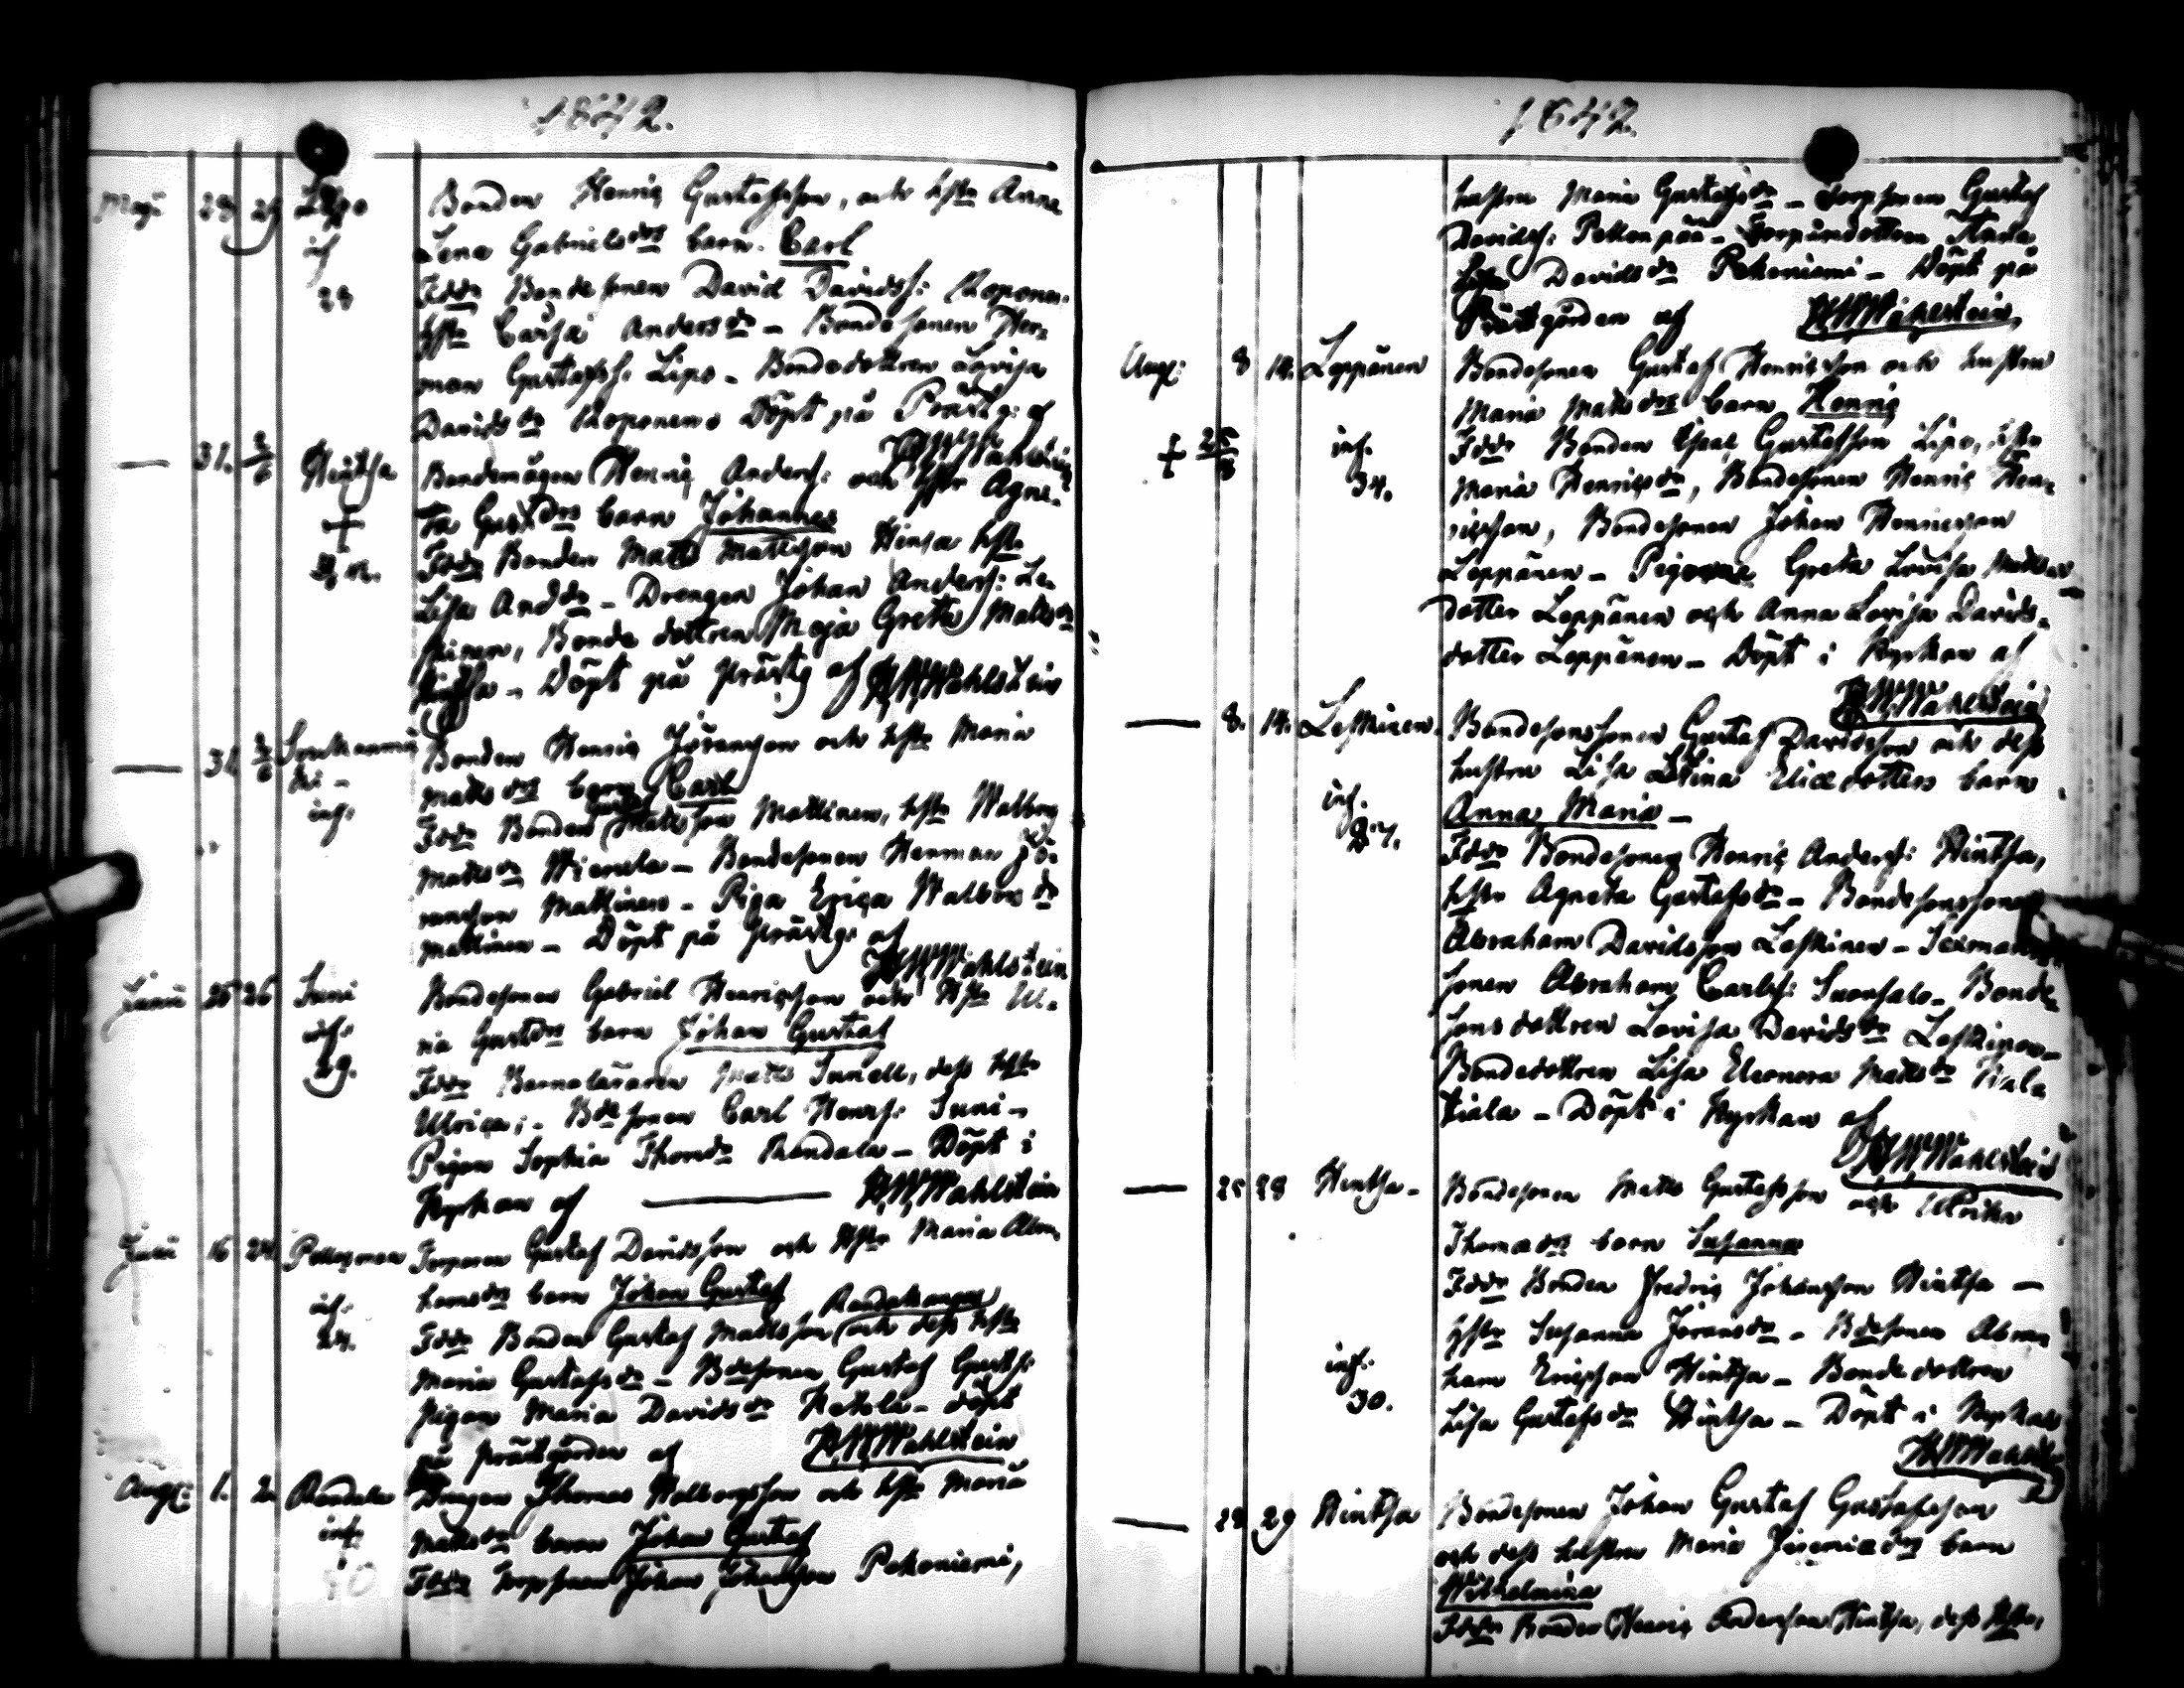 1842.
Maji 28 29 Lipo Bonden Henric Gustafsson, och hstr Anna
inf Lena Gabrielsdrs barn. Carl
28 Fddr Bondesonen David Davidss: Koponen
hstr Caisa Andersdr - Bondesonen Her-
man Gustafss: Lipo - Bondedottren Lovisa
Davidsdr Koponen. Döpt på Prästg: af
HWWahlstein
31. 2/6 Hintsa Bondemågen Henric Anderss: och hstr Agne-
ta Gustdrs barn Johannes
Fddr Bonden Matts Mattsson Hinsa hstr
Lisa Anddr - Drengen Johan Anderss: Le-
skinen, Bondedottren Maja Greta Mattsdr
Hintsa - Döpt på prästg af HWWahlstein
31 2/6 Bonden Henric Jöransson och hstr Maria
inf. Mattsdrs barn Carl
Fddr Bonden Gustaf Mattsson Mattinen, hstr Walborg
Mattsdr - Bondesonen Herman Jö-
ransson Mattinen - Piga Erica Walborsdr
Mattinen - Döpt på prästg: af
HWWahlstein
Junii 25 26 Suni Bondesonen Gabriel Henricsson och hstr
inf. Gustdrs barn Johan Gustaf
29. Fddr Barnaläraren Matts Sunell, dess hstr
Ulrica; - Bdesonen Carl Henrss: Suni -
Pigan Sophia Thomdr Randala - Döpt i
Kyrkan af HWWahlstein
16 24 Torparen Gustaf Davidsson och hstr Maria Abra-
inf. hamsdrs barn Johan Gustaf
24. Fddr Bonden Gustaf Mattsson och dess hstr
Maria Gustafsdr - Bdesonen Gustaf Gustss:
pigan Maria Davidsdr - döpt
på prästgården af HWWahlstein
Aug: 1. 2. Randala Drengen Thomas Walborgsson och hstr Maria
inf. Mattsdrs barn Johan Gustaf
Fddr Torpsonen Johan Johansson Pekoniemi,
1842.
hustru Maria Gustafsdr - Torpsonen Gustaf
Davidss: - Torparedottren
Lisa Davidsdr Pekoniemi - Döpt på
Prästgården af HWWahlstein.
Aug: 8 14. Leppänen Bondesonen Gustaf Henricsson och hustru
Maria Mattsdrs barn Henric
+ 25/8 inf. Fddr Bonden Isaac Gustafsson Lipo, hstr
34. Maria Henricsdr, Bondesonen Henric Hen-
ricsson, Bondesonen Johan Henricsson
Leppänen - Pigorna Greta Lovisa Matts-
dotter Leppänen och Anna Lovisa Davids-
dotter Leppänen - Döpt i Kyrkan af
HWWahlstein
8. 14. Leskinen. Bondesonssonen Gustaf Davidsson och dess
hustru Lisa Stina Eliædotters barn
inf. Anna Maria -
27. Fddr Bondesonen Henric Anderss: Hintsa,
hstr Agneta Gustafsdr - Bondesonssonen
Abraham Davidsson Leskinen - Sexmans
sonen Abraham Carlss: Suonsalo - Bonde-
sonsdottren Lovisa Davidsdr Leskinen -
Bondedottren Lisa Eleonora Mattsdr
- Döpt i Kyrkan af
HWWahlstein
25 28 Hintsa - Bondesonen Matts Gustafsson och Ulrika
Thomædrs barn Susanna
Fddr Bonden Fredric Johansson Hintsa -
hstr Susanna Jöransdr - Bdesonen Abra-
inf. ham Ericsson Hintsa - Bondedottren
30. Lisa Gustafsdr Hintsa - Döpt i Kyrkan
HWWahlstein
28 29 Hintsa Bondesonen Johan Gustaf Gustafsson
och dess hustru Maria Jeremiædrs barn
Wilhelmina
Fddr Bonden Henric Andersson Hintsa, dess hstr,